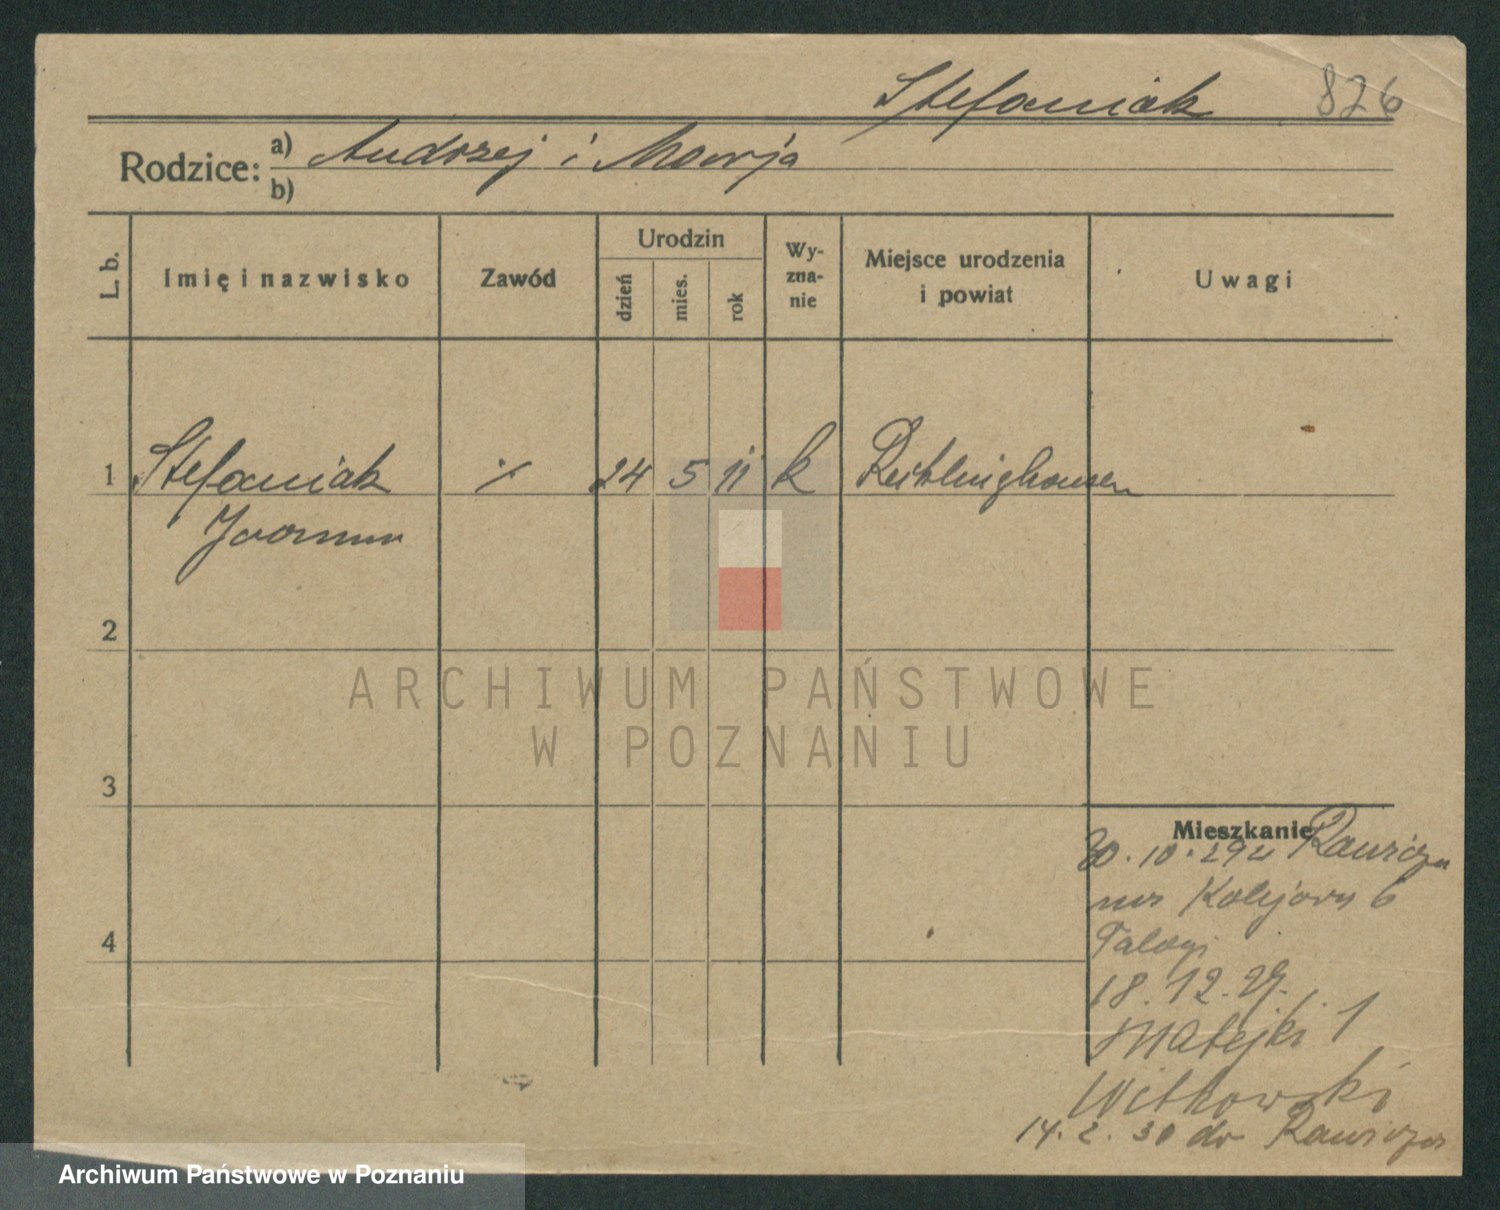 Stefaniak 826
Rodzice: a) Andrzej i Marja
b)
L. b. Imię i nazwisko Zawód Urodzin dzień mies. rok Wyznanie Miejsce urodzenia i powiat Uwagi
1 Stefaniak ⁒ 24 5 11 k
Joanna
2
ARCHIWUM PAŃSTWOWE
W POZNANIU
3
Mieszkanie
30.10.29 z Rawicza
Kolejowa 6
18.12.29.
Matejki 1
Witkowski
14.2.30 do Rawicza
4
Archiwum Państwowe w Poznaniu